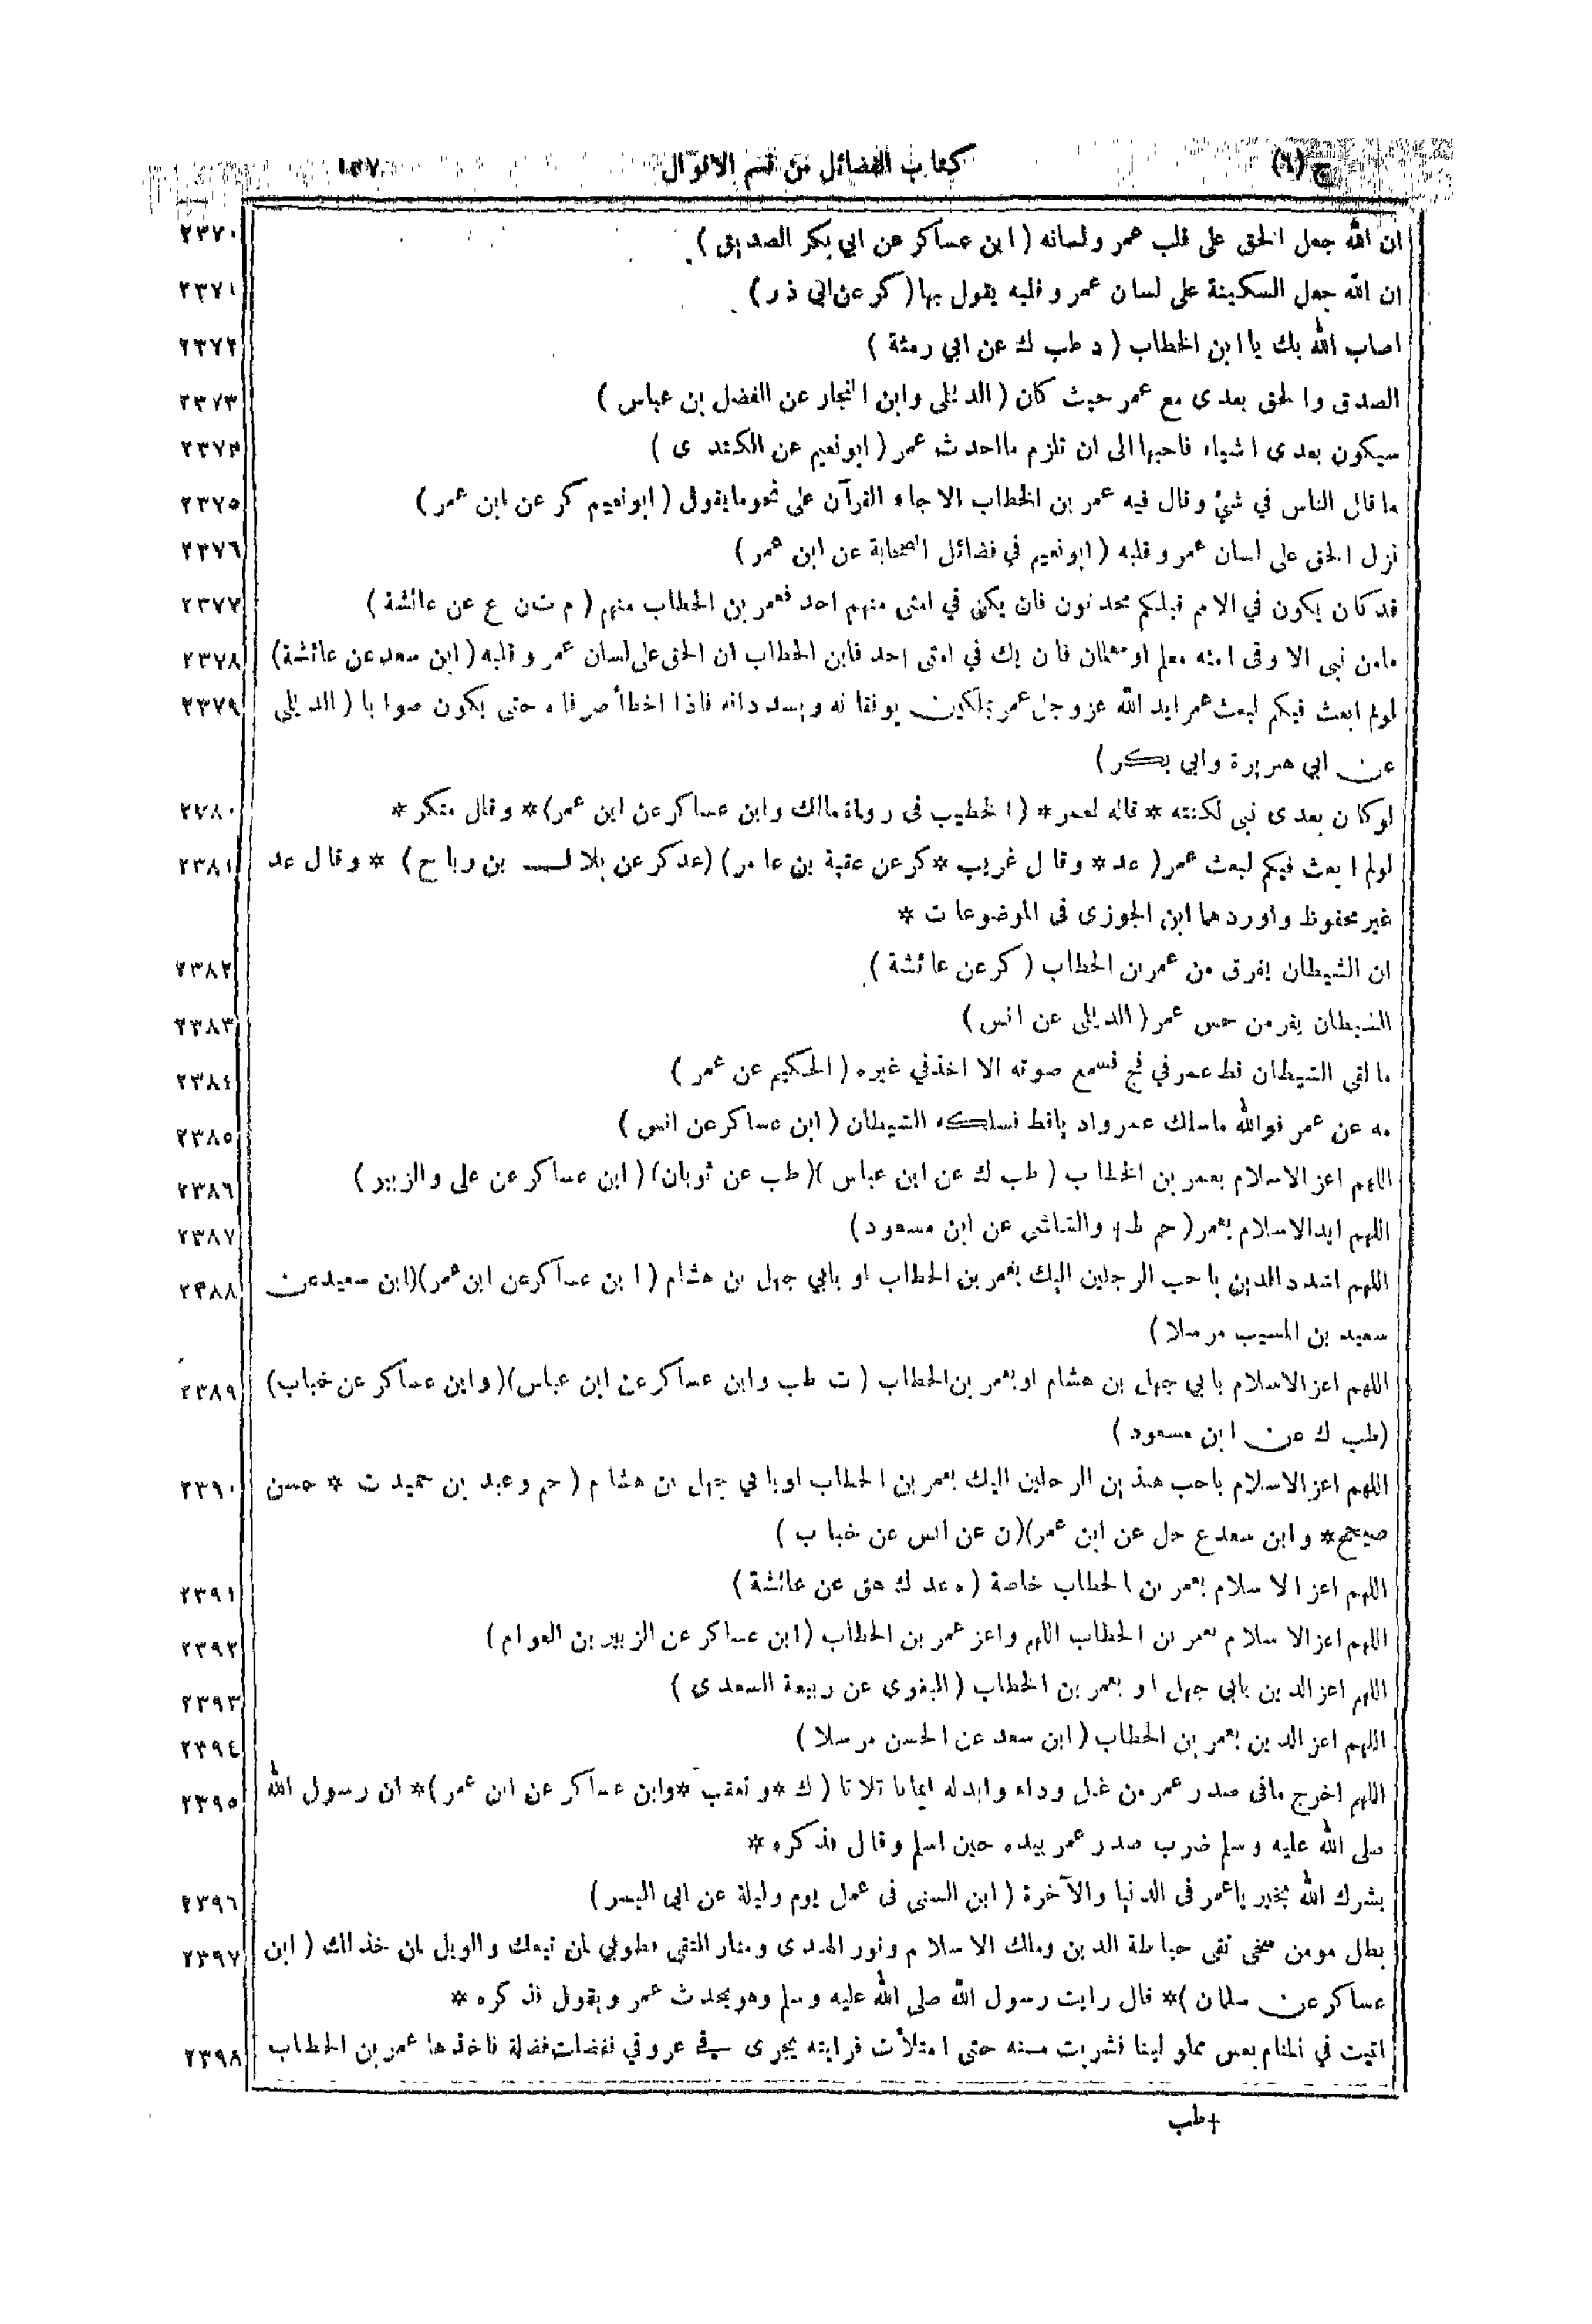 ج (٦) كتاب الفضائل من قسم الاقوال
ان الله جعل الحق على قلب عمر ولسانه ( ابن عساكر عن ابي بكر الصديق ) ٢٣٧٠
ان الله جعل السكينة على لسان عمر وقلبه يقول بها ( كر عن ابي ذر ) ٢٣٧١
اصاب الله بك يا ابن الخطاب ( د طب ك عن ابي رمثة ) ٢٣٧٢
الصدق والحق بعدى مع عمر حيث كان ( الديلى وابن النجار عن الفضل بن عباس ) ٢٣٧٣
سيكون بعدى اشياء فاحبها الى ان تلزم ما احدث عمر ( ابونعيم عن الكندى ) ٢٣٧٤
ما قال الناس في شئ وقال فيه عمر بن الخطاب الا جاء القرآن على نحو ما يقول ( ابونعيم كر عن ابن عمر ) ٢٣٧٥
نزل الحق على لسان عمر وقلبه ( ابونعيم في فضائل الصحابة عن ابن عمر ) ٢٣٧٦
قد كان يكون في الامم قبلكم محدثون فان يكن في امتى منهم احد فعمر بن الخطاب منهم ( م ت ن ع عن عائشة ) ٢٣٧٧
ما من نبى الا وفى امته معلم او معلمان فان يك في امتى احد فابن الخطاب ان الحق على لسان عمر وقلبه ( ابن سعد عن عائشة ) ٢٣٧٨
لولم ابعث فيكم لبعث عمر ايد الله عزوجل عمر بملكين يوفقانه ويسددانه فاذا اخطأ صرفاه حتى يكون صوابا ( الديلى ٢٣٧٩
عن ابي هريرة وابي بكر )
لوكان بعدى نبى لكنته * قاله لعمر * ( الخطيب فى رواة مالك وابن عساكر عن ابن عمر ) * وقال منكر * ٢٣٨٠
لولم ابعث فيكم لبعث عمر ( عد * وقال غريب * كر عن عقبة بن عامر ) ( عد كر عن بلال بن رباح ) * وقال عد ٢٣٨١
غير محفوظ واوردهما ابن الجوزى فى الموضوعات *
ان الشيطان يفرق من عمر بن الخطاب ( كر عن عائشة ) ٢٣٨٢
الشيطان يفر من حس عمر ( الديلى عن انس ) ٢٣٨٣
ما لقى الشيطان قط عمر في فج فسمع صوته الا اخذ في غيره ( الحكيم عن عمر ) ٢٣٨٤
مه عن عمر فوالله ما سلك عمر واد ياقط فسلكه الشيطان ( ابن عساكر عن انس ) ٢٣٨٥
اللهم اعز الاسلام بعمر بن الخطاب ( طب ك عن ابن عباس ) ( طب عن ثوبان ) ( ابن عساكر عن على والزبير ) ٢٣٨٦
اللهم ايد الاسلام بعمر ( حم ط † والشاشى عن ابن مسعود ) ٢٣٨٧
اللهم اشدد الدين باحب الرجلين اليك بعمر بن الخطاب او بابي جهل بن هشام ( ابن عساكر عن ابن عمر ) ( ابن سعيد عن ٢٣٨٨
سعيد بن المسيب مرسلا )
اللهم اعز الاسلام بابي جهل بن هشام او بعمر بن الخطاب ( ت طب وابن عساكر عن ابن عباس ) ( وابن عساكر عن خباب ) ٢٣٨٩
( طب ك عن ابن مسعود )
اللهم اعز الاسلام باحب هذين الرجلين اليك بعمر بن الخطاب او بابي جهل بن هشام ( حم وعبد بن حميد ت * حسن ٢٣٩٠
صحيح * وابن سعد ع حل عن ابن عمر ) ( ن عن انس عن خباب )
اللهم اعز الاسلام بعمر بن الخطاب خاصة ( ه عد ك هق عن عائشة ) ٢٣٩١
اللهم اعز الاسلام بعمر بن الخطاب اللهم واعز عمر بن الخطاب ( ابن عساكر عن الزبير بن العوام ) ٢٣٩٢
اللهم اعز الدين بابى جهل او بعمر بن الخطاب ( البغوى عن ربيعة السعدى ) ٢٣٩٣
اللهم اعز الدين بعمر بن الخطاب ( ابن سعد عن الحسن مرسلا ) ٢٣٩٤
اللهم اخرج مافى صدر عمر من غل وداء وابدله ايمانا ثلاثا ( ك * وتعقب * وابن عساكر عن ابن عمر ) * ان رسول الله ٢٣٩٥
صلى الله عليه وسلم ضرب صدر عمر بيده حين اسلم وقال فذكره *
بشرك الله بخير ياعمر فى الدنيا والآخرة ( ابن السنى فى عمل يوم وليلة عن ابى اليسر ) ٢٣٩٦
بطل مومن سخى تقى حياطة الدين وملك الاسلام ونور الهدى ومنار التقى فطوبي لمن تبعك والويل لمن خذلك ( ابن ٢٣٩٧
عساكر عن سلمان ) * قال رايت رسول الله صلى الله عليه وسلم وهو يحدث عمر ويقول فذكره *
اتيت في المنام بعس مملو لبنا فشربت منه حتى امتلأت فرايته يجرى في عروقي ففضلت فضلة فاخذها عمر بن الخطاب ٢٣٩٨
† طب